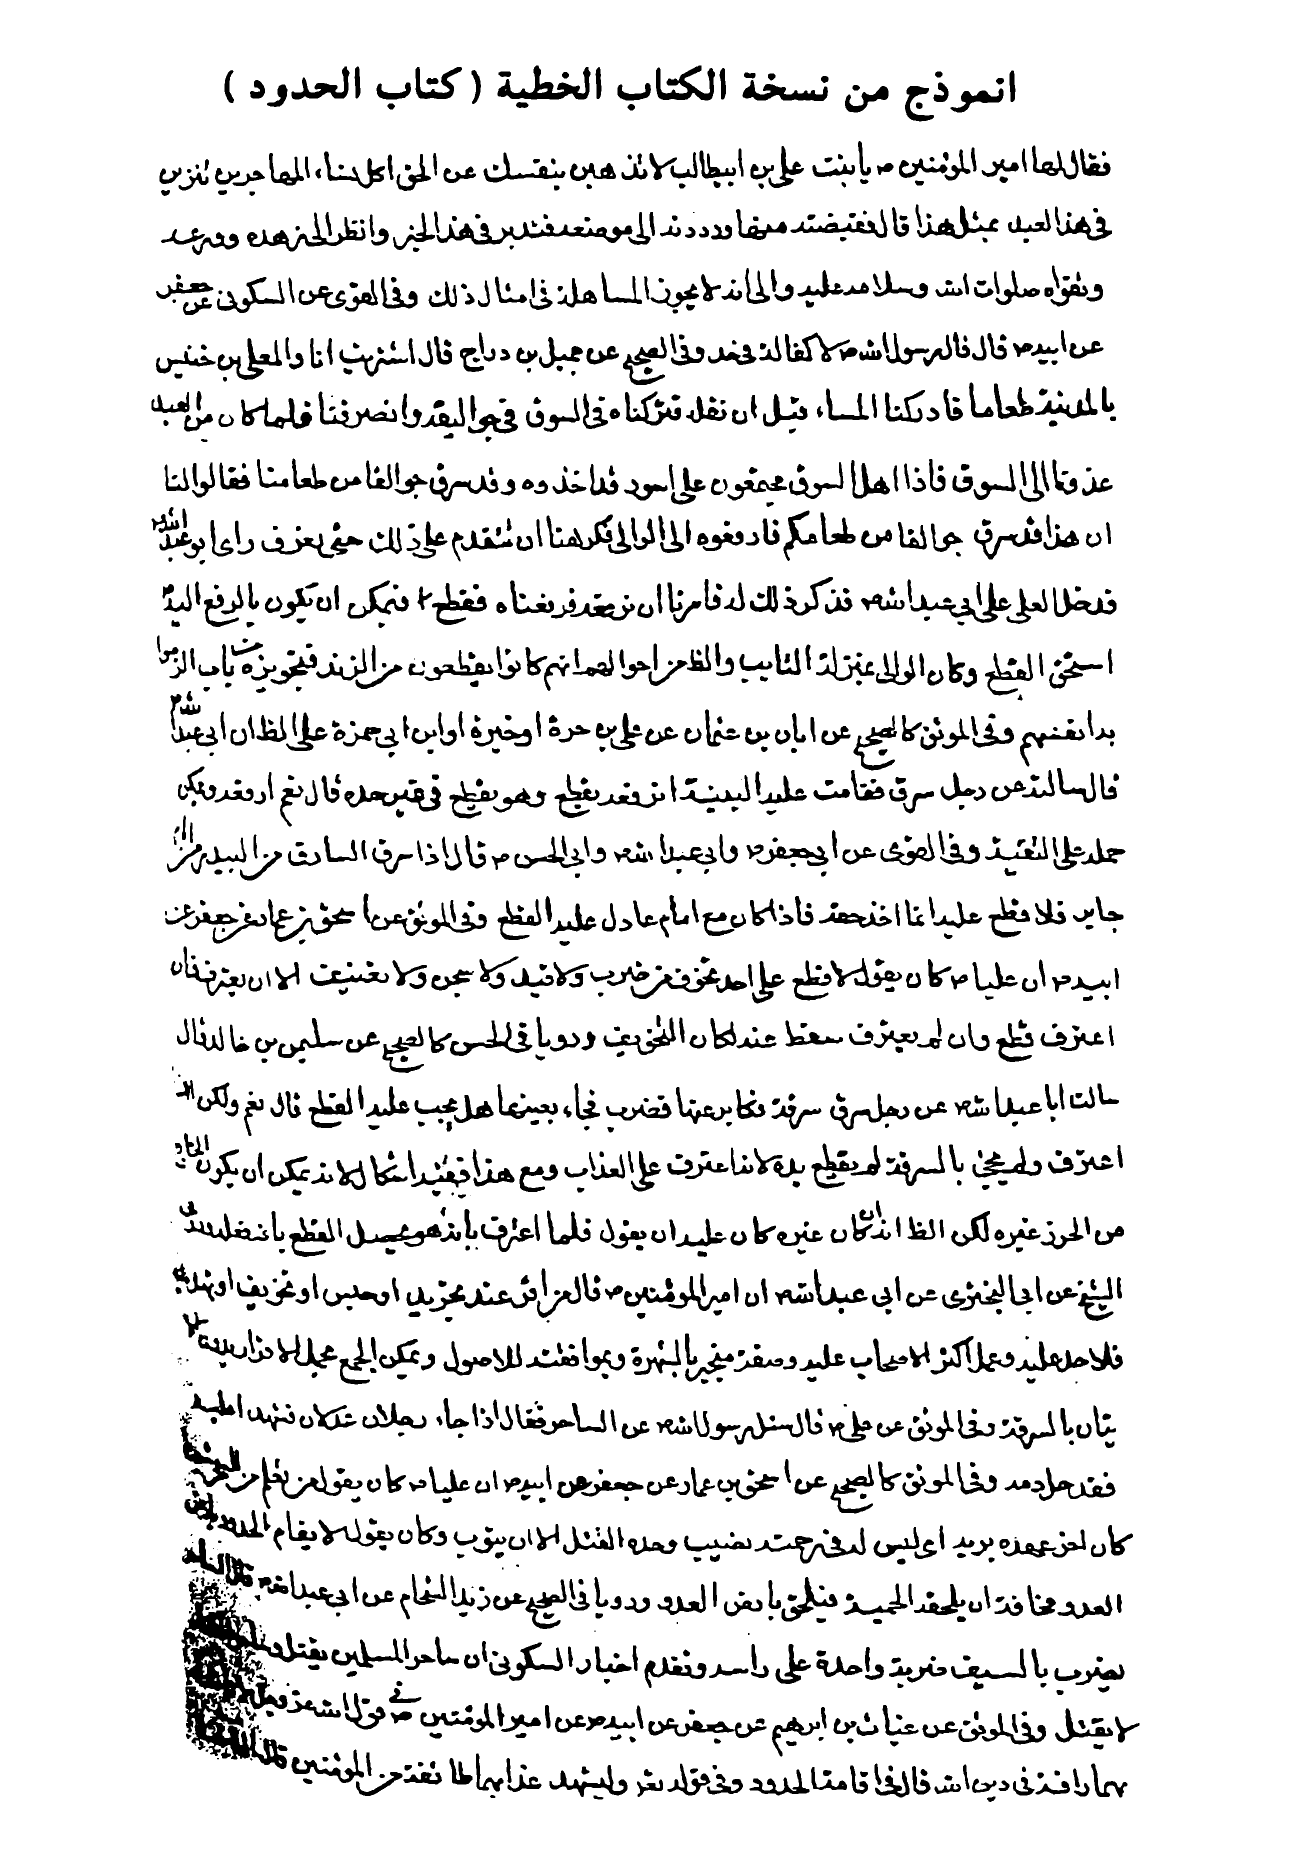 انموذج من نسخة الكتاب الخطية ( كتاب الحدود )
فقال لها امير المؤمنين ع يا بنت علي بن ابيطالب لا تذهبن بنفسك عن الحق اكل نساء المهاجرين تتزين
في هذا العيد بمثل هذا قال فقبضته منها ورددته الى موضعه فتدبر في هذا الخبر وانظر الى زهده وورعه
وتقواه صلوات الله وسلامه عليه والى انه لا يجوز المساهلة في امثال ذلك وفي القوى عن السكوني عن جعفر
عن ابيه ع قال قال رسول الله ص لا كفالة في حد وفي الصحيح عن جميل بن دراج قال اشتريت انا والمعلى بن خنيس
بالمدينة طعاما فادركنا المساء قبل ان ننقله فتركناه في السوق في جواليقه وانصرفنا فلما كان من الغد
غدونا الى السوق فاذا اهل السوق مجتمعون على اسود قد اخذوه وقد سرق جوالقا من طعامنا فقالوا لنا
ان هذا قد سرق جوالقا من طعامكم فارفعوه الى الوالي فكرهنا ان نتقدم على ذلك حتى نعرف راى ابو عبد الله ع
فدخل المعلى على ابي عبد الله ع فذكر ذلك له فامرنا ان نرفعه فرفعناه فقطع فيمكن ان يكون بالرفع اليه
استحق القطع وكان الوالي بمنزلة النايب والظ من احوالهم انهم كانوا يقطعون من الزند فتجويزه من باب الزموا
بدا بعضهم وفي الموثق كالصحيح عن ابان بن عثمان عن علي بن حمزة او غيره او ابن ابي حمزة على الظ ان ابي عبد الله ع
قال سالته عن رجل سرق فقامت عليه البينة انرفعه يقطع وهو يقطع في غير حده قال نعم ارفعه ويمكن
حمله على التقية وفي القوى عن ابي جعفر ع وابي عبد الله ع وابي الحسن ع قال اذا سرق السارق من البيدر من امام
جاير فلا قطع عليه انما اخذ حقه فاذا كان مع امام عادل عليه القطع وفي الموثق عن اسحق بن عمار عن جعفر عن
ابيه ع ان عليا ع كان يقول لا قطع على احد تخوف من ضرب ولا قيد ولا سجن ولا تعنيف الا ان يعترف فان
اعترف قطع وان لم يعترف سقط عنه لمكان التخويف ورويا في الحسن كالصحيح عن سليمن بن خالد قال
سالت ابا عبد الله ع عن رجل سرق سرقة فكابر عنها فضرب فجاء بعينها هل يجب عليه القطع قال نعم ولكن اذا
اعترف ولم يجئ بالسرقة لم يقطع يده لانه اعترف على العذاب ومع هذا ففيه اشكال لانه يمكن ان يكون
من الحرز غيره لكن الظ انه ان كان غيره كان عليه ان يقول فلما اعترف بانه هو يحصل القطع بانه
الشيخ عن ابي البختري عن ابي عبد الله ع ان امير المؤمنين ع قال من اقر عند تجريد او حبس او تخويف او تهديد
فلا حد عليه وعمل اكثر الاصحاب عليه وضعفه منجبر بالشهرة وبموافقته للاصول ويمكن الجمع بحمل
بالسرقة وفي الموثق عن علي ع قال سئل رسول الله ص عن الساحر فقال اذا جاء رجلان عدلان فشهدا عليه
فقد حل دمه وفي الموثق كالصحيح عن اسحق بن عمار عن جعفر عن ابيه ع ان عليا ع كان يقول من تعلم من السحر شيئا
كان اخر عهده بربه اى ليس له في رحمته نصيب وحده القتل الا ان يتوب وكان يقول لا يقام الحدود بارض
العدو مخافة ان يلحقه الحمية فيلحق بارض العدو ورويا في الصحيح عن زيد الشحام عن ابي عبد الله ع قال الساحر
يضرب بالسيف ضربة واحدة على راسه وتقدم اخبار السكوني ان ساحر المسلمين يقتل
لا يقتل وفي الموثق عن غياث بن ابرهيم عن جعفر عن ابيه ع عن امير المؤمنين ع في قول الله عز وجل
بهما رافة في دين الله قال في اقامة الحدود وفي قوله تعر وليشهد عذابهما طائفة من المؤمنين قال